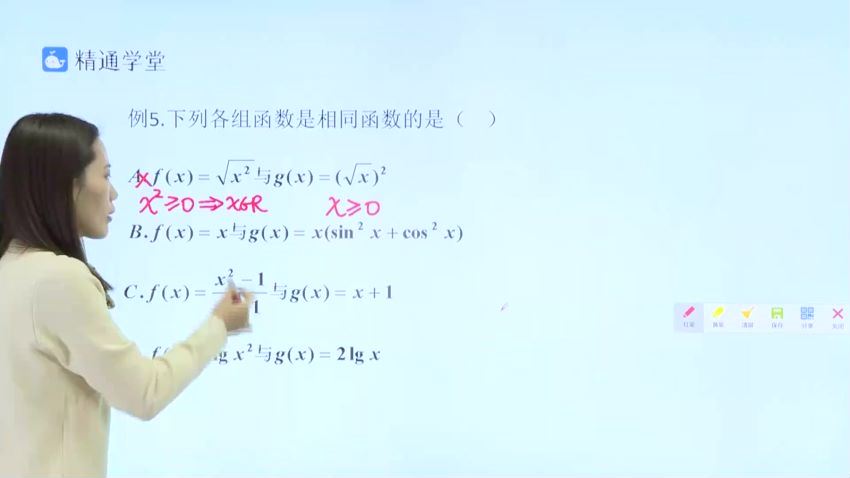 精通学堂
例5.下列各组函数是相同函数的是（ ）
A.f(x)=√x²与g(x)=(√x)²
x²≥0⇒x∈R x≥0
B.f(x)=x与g(x)=x(sin²x+cos²x)
C.f(x)=x²-1 1与g(x)=x+1
f lg x²与g(x)=2lg x
红笔 清屏 保存 分享 关闭